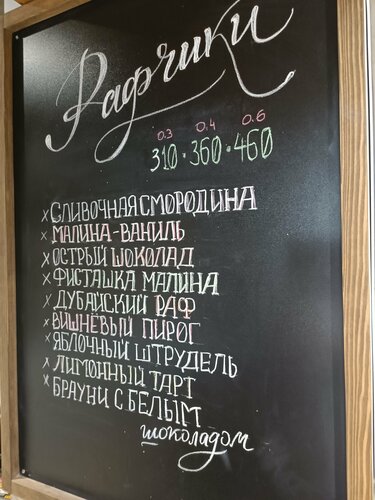 Рафчики
0.3 0.4 0.6
310 · 360 · 460
× СЛИВОЧНАЯ СМОРОДИНА
× МАЛИНА-ВАНИЛЬ
× ОСТРЫЙ ШОКОЛАД
× ФИСТАШКА МАЛИНА
× ДУБАЙСКИЙ РАФ
× ВИШНЁВЫЙ ПИРОГ
× ЯБЛОЧНЫЙ ШТРУДЕЛЬ
× ЛИМОННЫЙ ТАРТ
× БРАУНИ С БЕЛЫМ
шоколадом